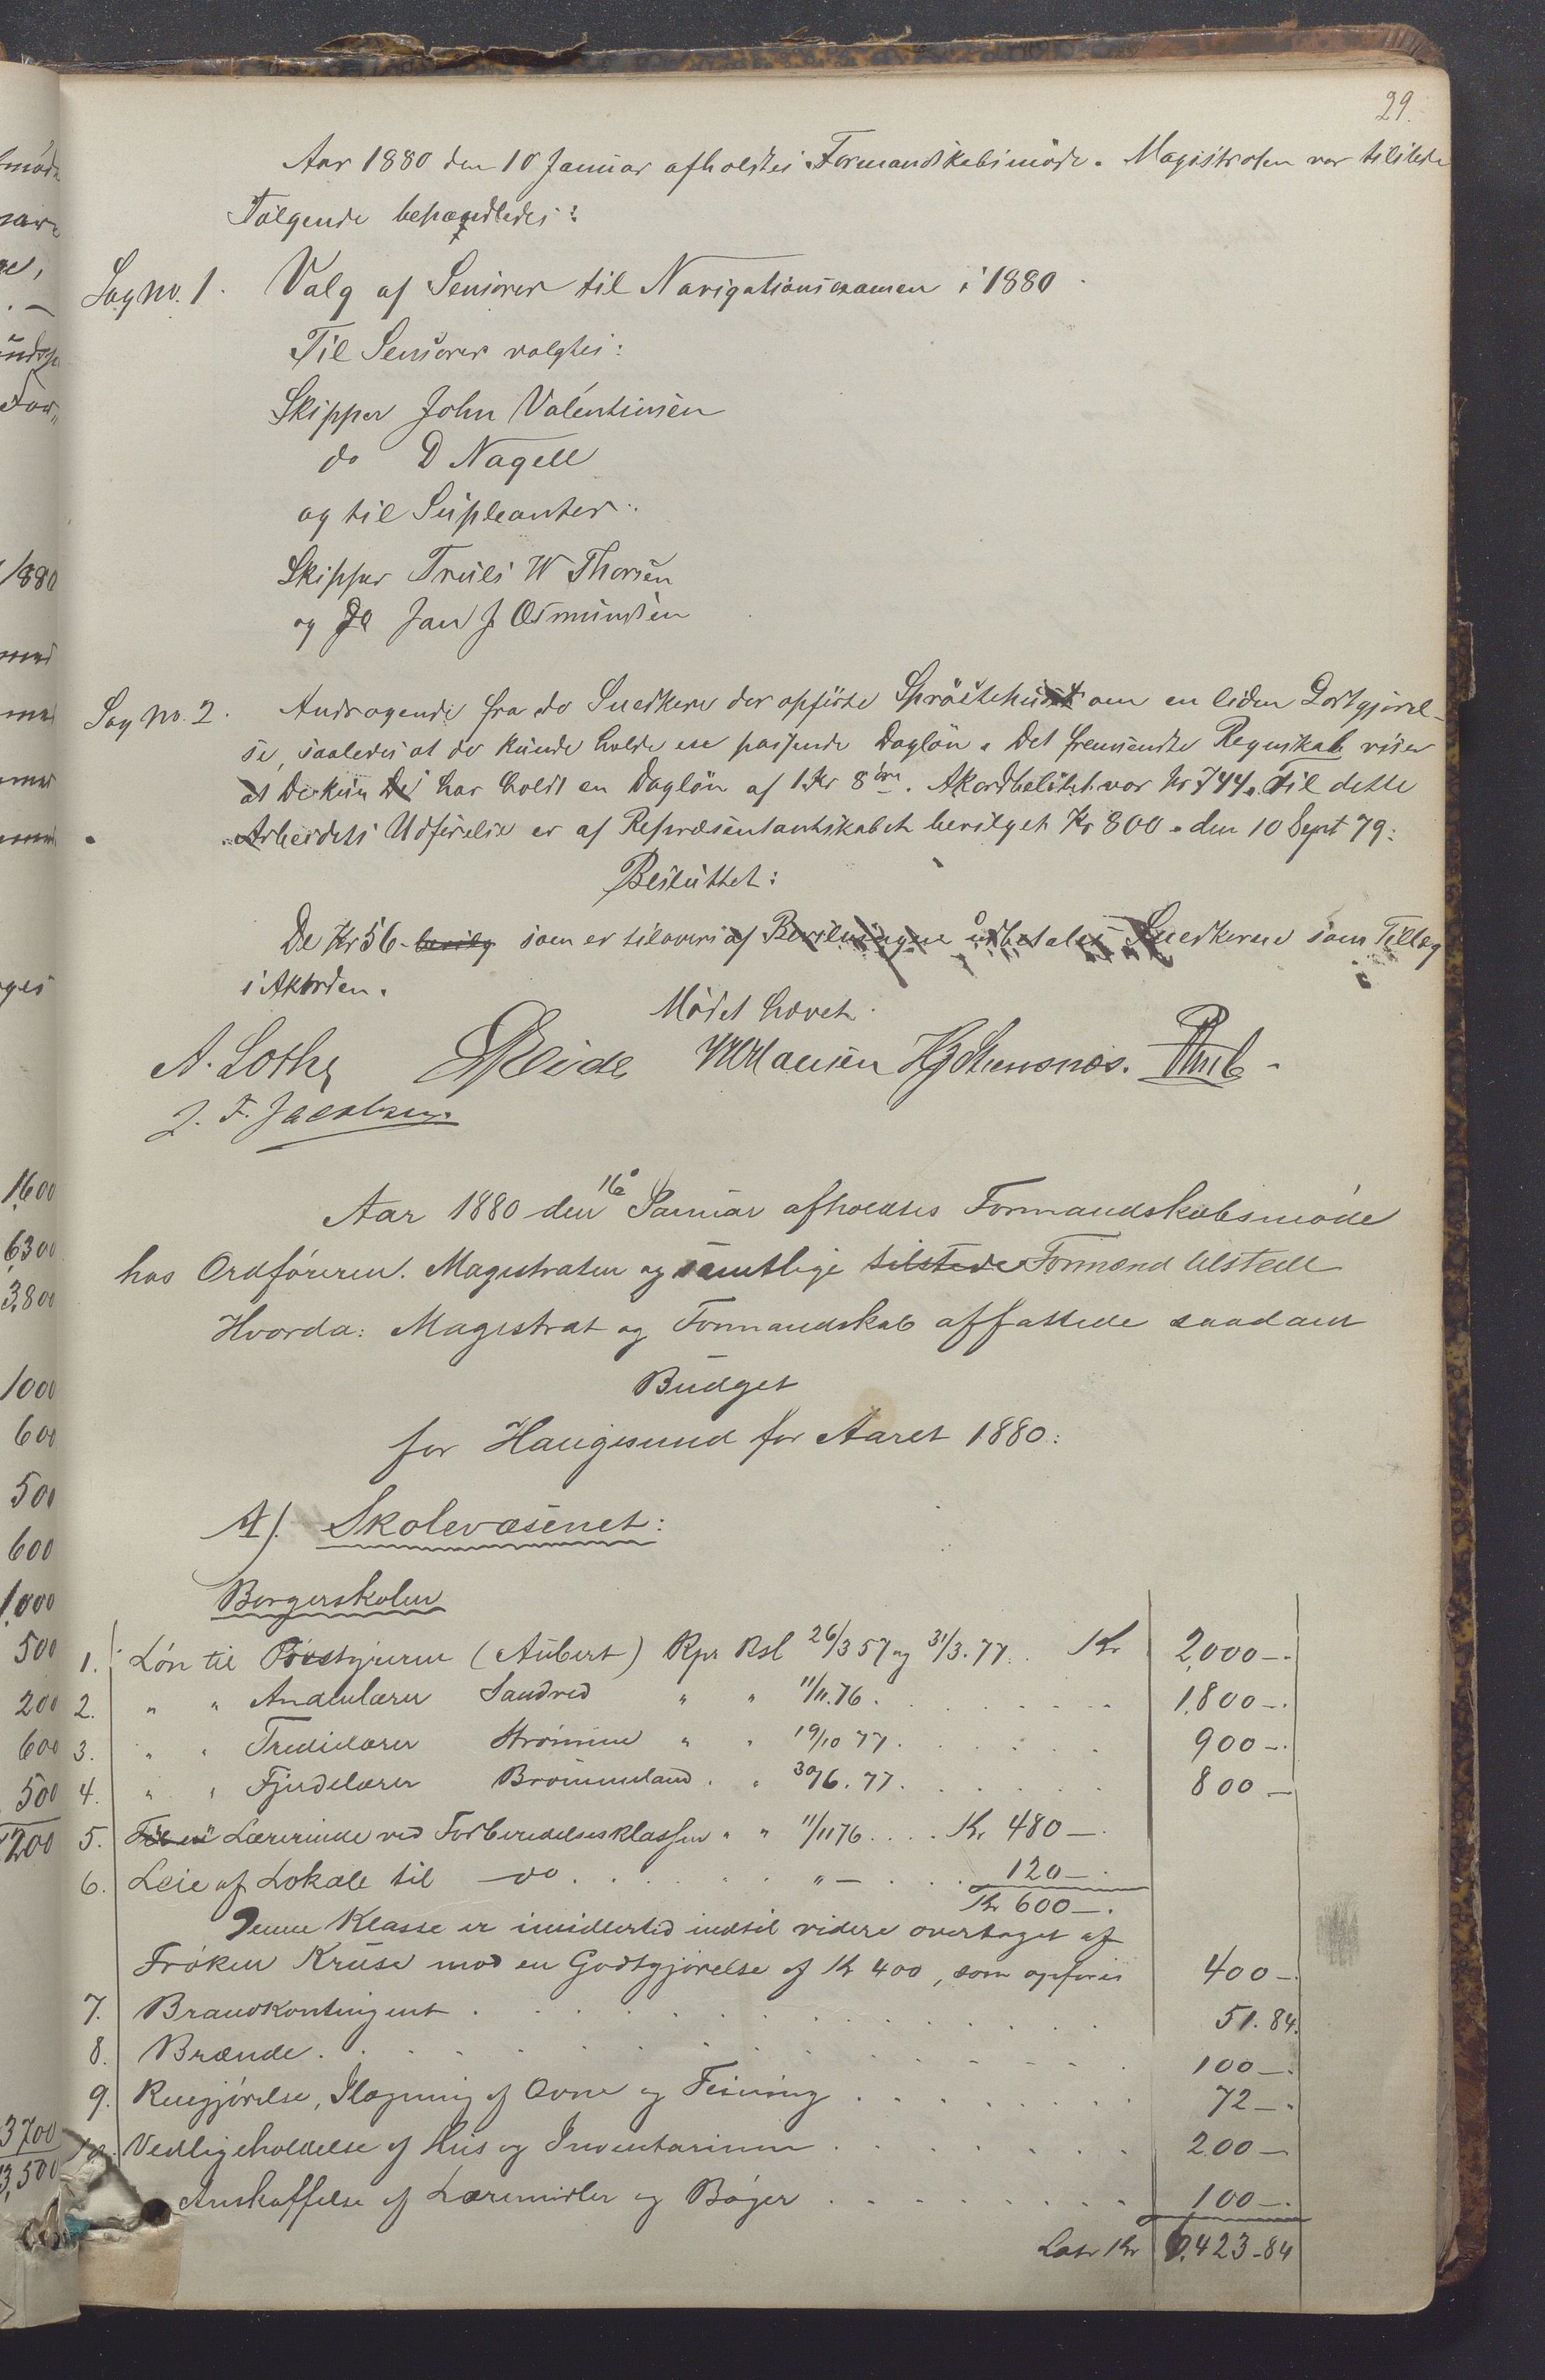 29.
Aar 1880 den 10 Januar afholdtes Formandskabsmöde. Magistraten var tilstede
Følgende behandledes:
Sag No. 1. Valg af Sensorer til Navigationsexamen i 1880.
Til Sensorer valgtes:
Skipper John Valentinsen
do D Nagell
og til Supleanter:
Skipper Truls W Thorsen
og Do Jan J. Osmundsen
Sag No. 2. Andragende fra de Snedkere der opførte Spröitehuset om en liden Godtgjörel-
se, saaledes at de kunde holde en passende Daglön. Det fremsendte Regnskab viser
at De kun har holdt en Daglön af 1 Kr 8 öre. Akordbelöbet var Kr 744. Til dette
Arbeidets Udförelse er af Repræsentantskabet bevilget Kr 800. den 10 Sept 79:
Besluttet:
De Kr 56 bevilg som er tilovers af Bevilgningen udbetales Snedkerne som Tillæg
i Akorden.
Mödet hævet.
A. Lothe Eide Hansen
J. F. Jacobsen.
Aar 1880 den 16de Januar afholdtes Formandskabsmøde
hos Ordføreren. Magistraten og samtlige tilstede Formænd tilstede
Hvorda: Magistrat og Formandskab affattede saadant
Budget
for Haugesund for Aaret 1880:
A). Skolevæsenet:
Borgerskolen
1. Løn til Bestyreren (Aubert) Rpr Bsl 26/3 57 og 31/3. 77. Kr 2,000-.
2. " " Andenlærer Sandved " " 11/11. 76. 1,800-.
3. " " Tredielærer Strømme " " 19/10 77. 900-.
4. " " Fjerdelærer Brømmeland " " 30/6. 77. 800-
5. Til en Lærerinde ved Forberedelsesklassen " " 11/11 76 Kr 480-.
6. Leie af Lokale til do " - 120-.
Kr 600-.
Denne Klasse er imidlertid indtil videre overtaget af
Frøken Kruse mod en Godtgjørelse af Kr 400, som opføres 400-.
7. Brandkontingent 51. 84.
8. Brænde 100-.
9. Rengjørelse, Ilægning af Ovne og Feining 72-.
10. Vedligeholdelse af Hus og Inventarium 200-
Anskaffelse af Læremidler og Bøger 100-.
Latr Kr 6,423-84